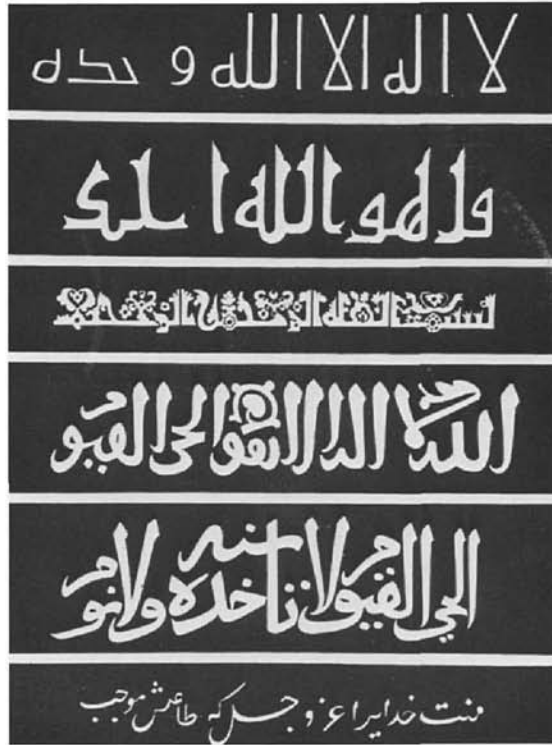 لا اله الا الله وحده
قل هو الله احد
بسم الله الرحمن الرحيم
الله لا اله الا هو الحي القيوم
الحي القيوم لا تأخذه سنه ولا نوم
منت خدایرا عز و جل که طاعتش موجب